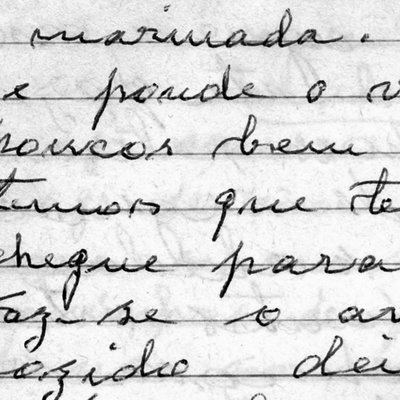 marinada.
e poude o v
poucos bem
temos que te
chegue para
faz-se o ar
cozido dei